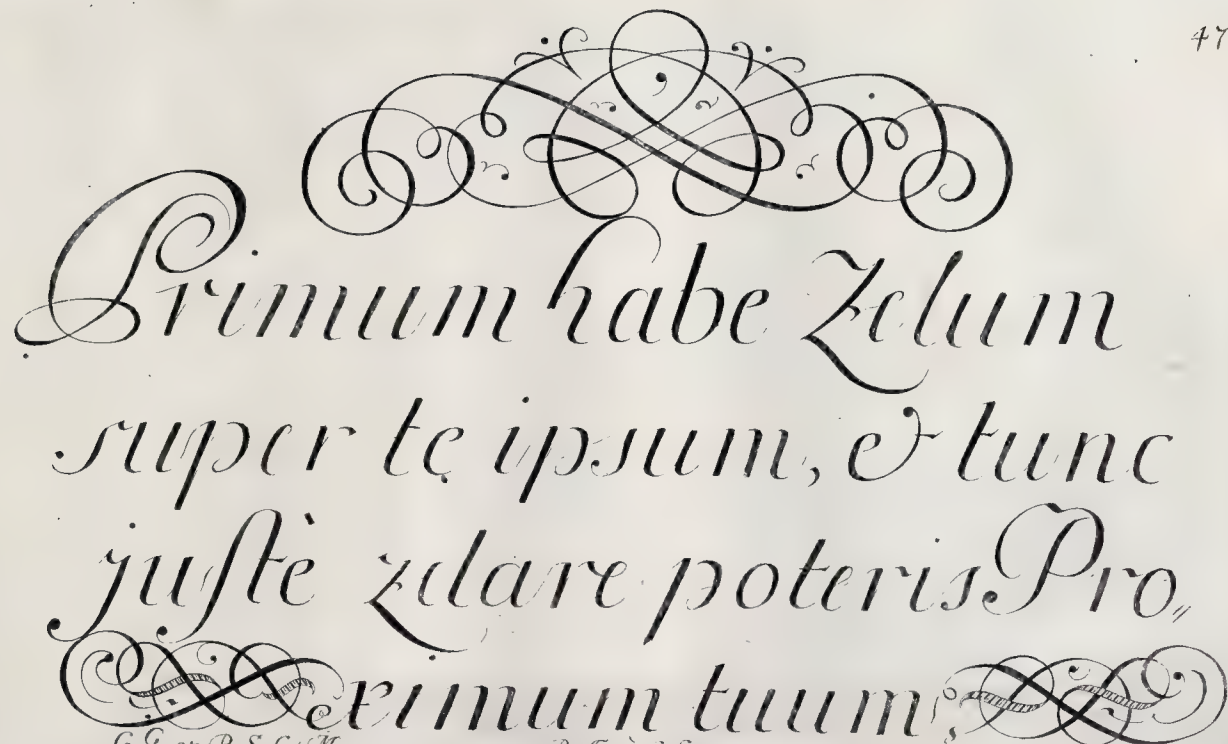 47
Primum habe Zelum
super te ipsum, & tunc
justè zelare poteris Pro„
ximum tuum.